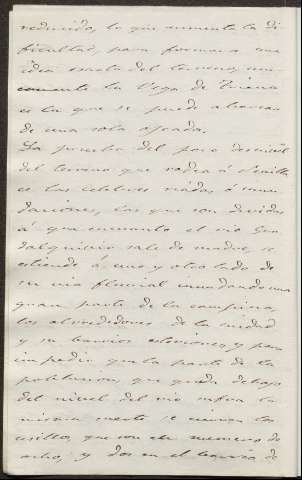 reducido, lo que aumenta la di
ficultad, para formarse una
idea exacta del terreno, uni
camente la Vega de Triana
es la que se puede abarcar
de una sola ojeada.
La prueba del poco desnivel
del terreno que rodea á Sevilla
es las celebres riadas, ó inun
daciones, las que son devidas
á que en cuanto el rio Gua
dalquivir sale de madre, se
estiende á uno y otro lado de
su via fluvial inundando una
gran parte de la campiña,
los alrededores de la ciudad
y su barrios estensiones, y para
impedir que la parte de la
poblacion, que queda debajo
del nivel del rio sufra la
misma suerte se cierran los
usillos, que son en numero de
ocho, y dos en el barrio de